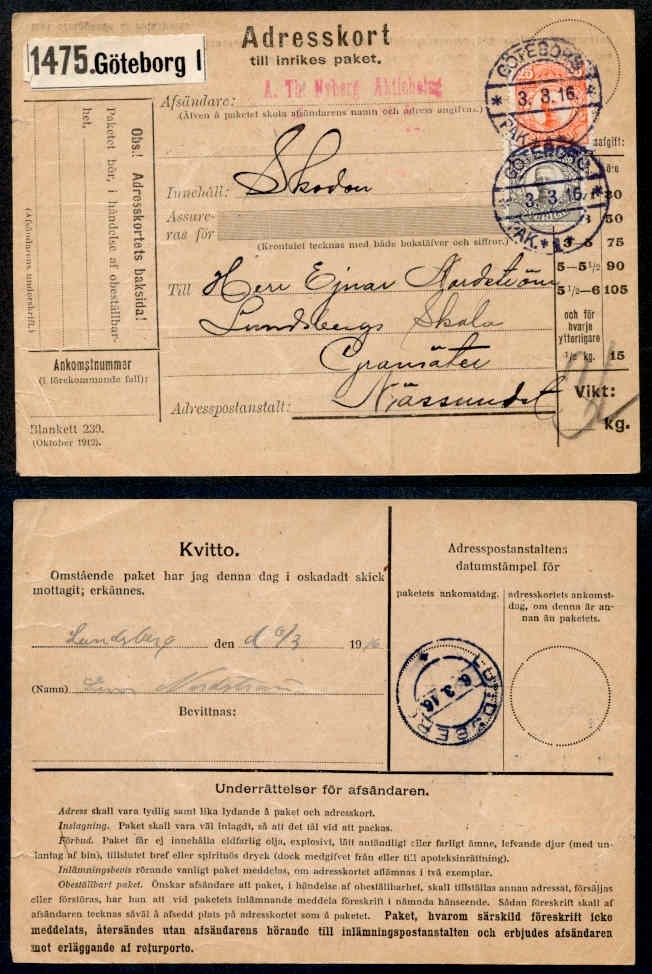 Adresskort
till inrikes paket.
1475. Göteborg 1
A. Th: Nyberg Aktiebolag
Afsändare:
(Äfven å paketet skola afsändarens namn och adress angifvas.)
GÖTEBORG 1
3. 3. 16.
PAK.
GÖTEBORG 1
3. 3. 16
PAK.
Obs! Adresskortets baksida!
Paketet bör, i händelse af obeställbar-
het,
(Afsändarens underskrift.)
Innehåll: Skodon
Assure-
ras för
(Krontalet tecknas med både bokstäfver och siffror.)
Till Herr Ejnar Nordström
Lundsbergs Skola
Gransäter
Adresspostanstalt: Nässundet
afgift:
30
50
3—5 75
5—5 1/2 90
5 1/2—6 105
och för
hvarje
ytterligare
1/2 kg. 15
Vikt:
kg.
Ankomstnummer
(i förekommande fall):
Blankett 239.
(Oktober 1912).
Kvitto.
Omstående paket har jag denna dag i oskadadt skick
mottagit; erkännes.
Lundsberg den d 6/3 1916
(Namn) Nordström
Bevittnas:
Adresspostanstaltens
datumstämpel för
paketets ankomstdag.
adresskortets ankomst-
dag, om denna är an-
nan än paketets.
LUNDSBERG
6. 3. 16.
Underrättelser för afsändaren.
Adress skall vara tydlig samt lika lydande å paket och adresskort.
Inslagning. Paket skall vara väl inlagdt, så att det tål vid att packas.
Förbud. Paket får ej innehålla eldfarlig olja, explosivt, lätt antändligt eller farligt ämne, lefvande djur (med un-
dantag af bin), tillslutet bref eller spirituös dryck (dock medgifvet från eller till apoteksinrättning).
Inlämningsbevis rörande vanligt paket meddelas, om adresskortet aflämnas i två exemplar.
Obeställbart paket. Önskar afsändare att paket, i händelse af obeställbarhet, skall tillställas annan adressat, försäljas
eller förstöras, har han att vid paketets inlämnande meddela föreskrift i nämnda hänseende. Sådan föreskrift skall af
afsändaren tecknas såväl å afsedd plats på adresskortet som å paketet. Paket, hvarom särskild föreskrift icke
meddelats, återsändes utan afsändarens hörande till inlämningspostanstalten och erbjudes afsändaren
mot erläggande af returporto.